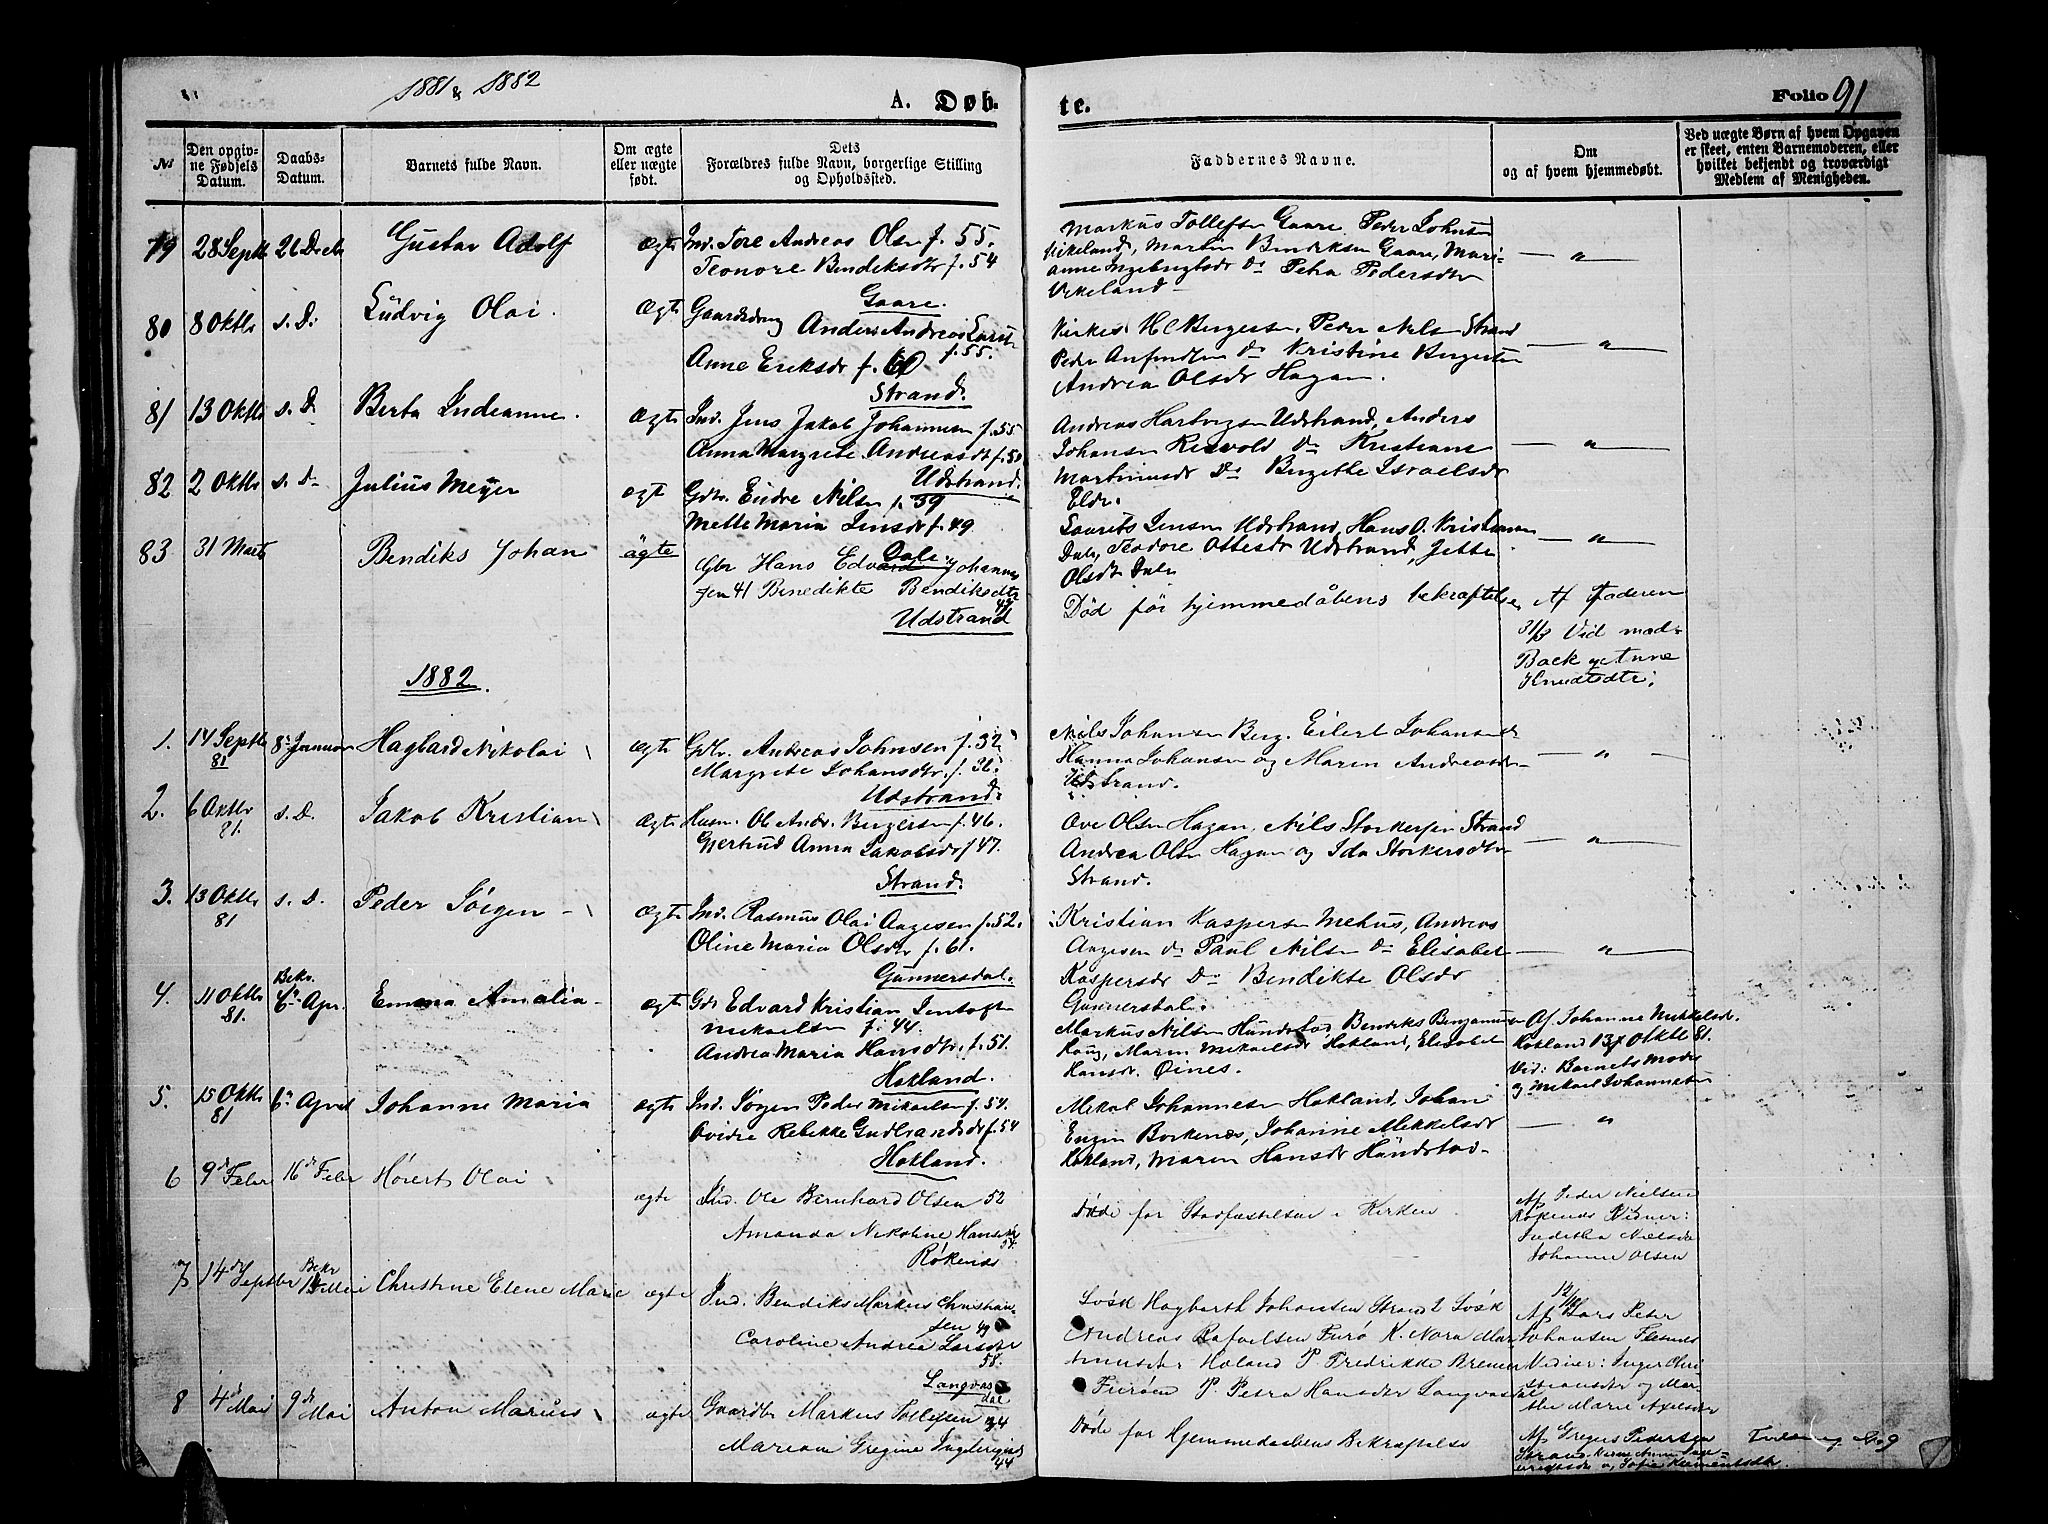 1881 & 1882
A. Døb-
te.
Folio 91
№
Den opgiv-
ne Fødsels
Datum.
Daabs-
Datum.
Barnets fulde Navn.
Om ægte
eller uægte
født.
Dets
Forældres fulde Navn, borgerlige Stilling
og Opholdssted.
Faddernes Navne.
Om
og af hvem hjemmedøbt.
Ved uægte Børn af hvem Opgaven
er skeet, enten Barnemoderen, eller
hvilket bekjendt og troværdigt
Medlem af Menigheden.
79 28 Septb 26 Decb Gustav Adolf ægte Ind. Tore Andreas Olsen f. 55.
Teonore Bendiksdtr f. 54
Gaare.
Markus Tollefsen Gaare Peder Johnsen
Vikeland, Martin Bendiksen Gaare, Mari-
anne Ingebrigtsdr Do Petra Pedersdtr
Vikeland
— " —
80 8 Oktbr s. D. Ludvig Olai. Ægte Gaardsdreng Anders Andreas Larsen
f. 55.
Anne Eriksdr f. 60
Strand.
Kirkes. H C Birgersen, Peder Nilsen Strand
Peder Anfindsen Do Kristine Birgersen
Andrea Olsdr Hagan.
— " —
81 13 Oktbr s. D. Berta Indianne. Ægte Ind. Jens Jakob Johannesen f. 55
Anna Margrete Andreasdtr f. 50
Udstrand.
Andreas Hartvigsen Udstrand, Anders
Johansen Resvold Do Kristiane
Martinusdr Do Birgitte Israelsdr
Elde.
— " —
82 2 Oktbr s. D. Julius Meyer ægt Gdbr. Endre Nilsen f. 39
Mette Maria Jensdr f. 49
Dale
Laurits Jensen Udstrand, Hans O. Kristiansen
Dale, Teodore Ottesdr Udstrand, Jette
Olsdtr Dale
— " —
83. 31 Marts Bendiks Johan ägte Gbr Hans Edvard Johannes
sen 41 Benedikte Bendiksdtr
41
Udstrand
Död før hjemmedåbens bekræftelse
Af Faderen
31/3 Vid mad.
Baek og Anne
Knudtsdtr.
1882.
1. 14 Septb
81 8. Januar Hagbard Nikolai ægte Gdbr. Andreas Johnsen f. 32
Margrete Johansdtr. f. 36.
Udstrand.
Nils Johansen Berg. Eilert Johansen
Hanna Johansen og Maren Andreasdr
Udstrand.
— " —
2. 6 Oktbr
81. s. D. Jakob Kristian Ægte Husm. Ole Andr. Birgersen f. 46.
Gjertrud Anna Jakobsdr f 47.
Strand.
Ove Olsen Hagan, Nils Storkersen Strand
Andrea Olsen Hagan og Ida Storkersdtr
Strand.
— " —
3. 13 Oktbr
81 s. D. Peder Sörgen Ægte Ind. Rasmus Olai Aagesen f. 52.
Oline Maria Olsdr f. 61.
Gunnersdal.
Kristian Kaspersen Mehus, Andreas
Aagesen do Paul Nilsen do Elisabet
Kaspersdr Do Bendikte Olsdr
Gunnersdal.
— " —
4. 11 Oktbr
81. Bekr.
6. Apr. Emma Amalia ægte Gdb Edvard Kristian Jentoft
Mikaelsen f. 44.
Andrea Maria Hansdtr. f. 51.
Hokland.
Markus Nilsen Hundstad, Bendiks Benjaminsen
Kong, Maren Mikaelsdr Hokland, Elisabet
Hansdr. Øines.
Af Johanne Mikkelsdr.
Hokland 13/10 Oktbr 81.
Vid: Barnets Moder
og Mikael Johannesen
5. 15 Oktbr
81 6. April Johanne Maria ægte Ind. Sören Peder Mikaelsen f. 54.
Ovidie Rebekke Gudbrandsdr f. 54
Hokland.
Mikal Johannesen Hokland, Johan
Engen Borkenæs, Johanne Mikkelsdr
Hokland, Maren Hansdr Hundstad
— " —
6 9de Febr 16de Febr Hövert Olai ægte Ind. Ole Bernhard Olsen 52
Amanda Nikoline Hansdtr
54.
Røkenæs
Døde for Stadfæstelsen i Kirken.
Af Peder Nielsen
Røkenæs Vidner:
Judithe Nielsdr
Johanne Olsen
7 14de Septbr Bekr
14 Mai Christine Elene Marie ægte Ind. Bendiks Markus Christian-
sen 49
Caroline Andrea Larsdtr
58.
Langvas
dal
Løsk Hagbarth Johansen Strand 2 Løsk
Andreas Rafaelsen Furö K. Nora Mar
tinusdtr Holand P. Fredrikke Bremer
Furøen P. Petra Hansdtr Langvasdal
12/10
Af Lars Peter
Johansen Flesnes
Vidner: Inger Chri
stiansdtr og Mar-
the Marie Axelsdtr
8 4de Mai 9de Mai Anton Marius ægte Gaardbr Markus Tollefsen 34
Mariane Gregine Ingebrigtsd
44
Døde for Hjemmedaabens Bekræftelse
Af Gregus Pedersen
Strand
Tvilling No 9